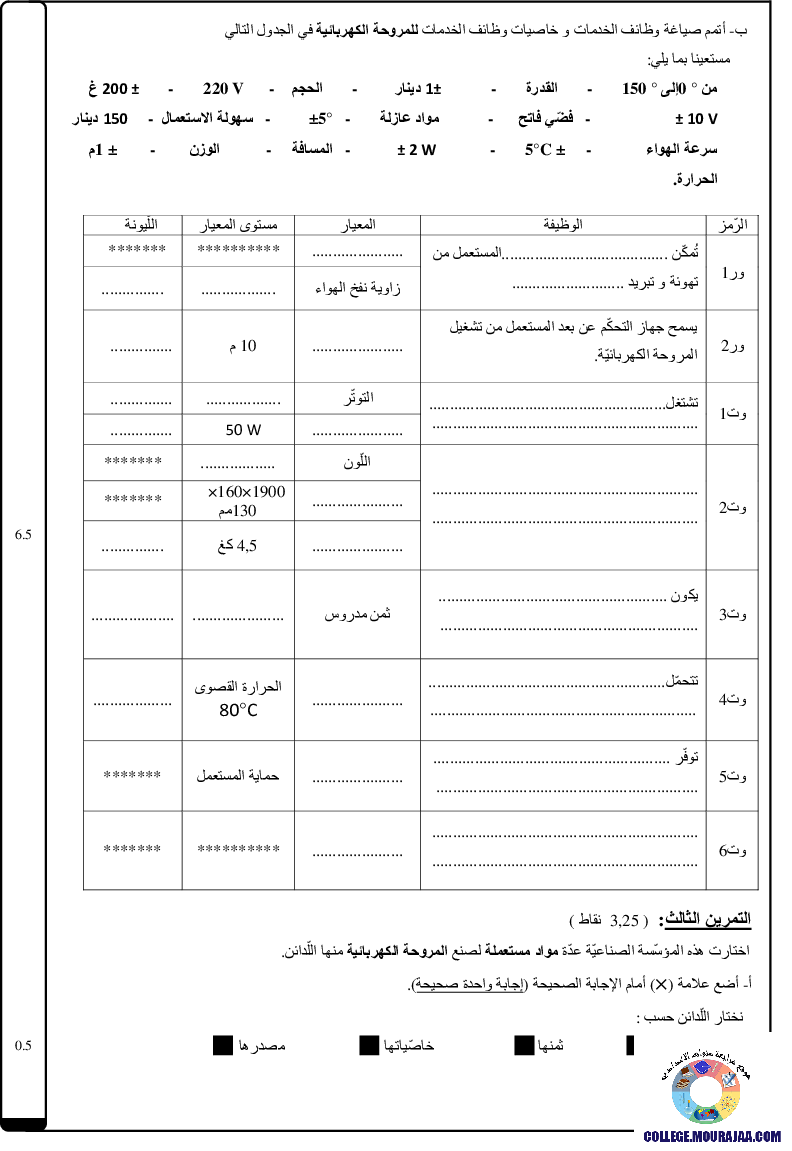 ب- أتمم صياغة وظائف الخدمات و خاصيات وظائف الخدمات للمروحة الكهربائية في الجدول التالي
مستعينا بما يلي:
من ° 0إلى ° 150 - القدرة - ±1 دينار - الحجم - 220 V - ± 200 غ
± 10 V - فضّي فاتح - مواد عازلة - ±5° - سهولة الاستعمال - 150 دينار
سرعة الهواء - ± 5°C - ± 2 W - المسافة - الوزن - ± 1م
الحرارة.
الرّمز الوظيفة المعيار مستوى المعيار اللّيونة
ور1 تُمكّن ........................................المستعمل من ...................... ********** *******
تهوئة و تبريد ........................... زاوية نفخ الهواء .................. ...............
ور2 يسمح جهاز التحكّم عن بعد المستعمل من تشغيل ...................... 10 م ...............
المروحة الكهربائيّة.
وت1 تشتغل......................................................... التوتّر .................. ...............
................................................................ ...................... 50 W ...............
وت2 ................................................................ اللّون .................. *******
................................................................ ...................... 1900×160× *******
130مم
...................... 4,5 كغ ...............
وت3 يكون ....................................................... ثمن مدروس ...................... ....................
..............................................................
وت4 تتحمّل......................................................... ...................... الحرارة القصوى ...................
................................................................ 80°C
وت5 توفّر ......................................................... ...................... حماية المستعمل *******
...............................................................
وت6 ................................................................ ...................... ********** *******
................................................................
6.5
التمرين الثالث: ( 3,25 نقاط )
اختارت هذه المؤسّسة الصناعيّة عدّة مواد مستعملة لصنع المروحة الكهربائية منها اللّدائن.
أ- أضع علامة (×) أمام الإجابة الصحيحة (إجابة واحدة صحيحة).
نختار اللّدائن حسب :
ثمنها خاصّياتها مصدرها
0.5
COLLEGE.MOURAJAA.COM